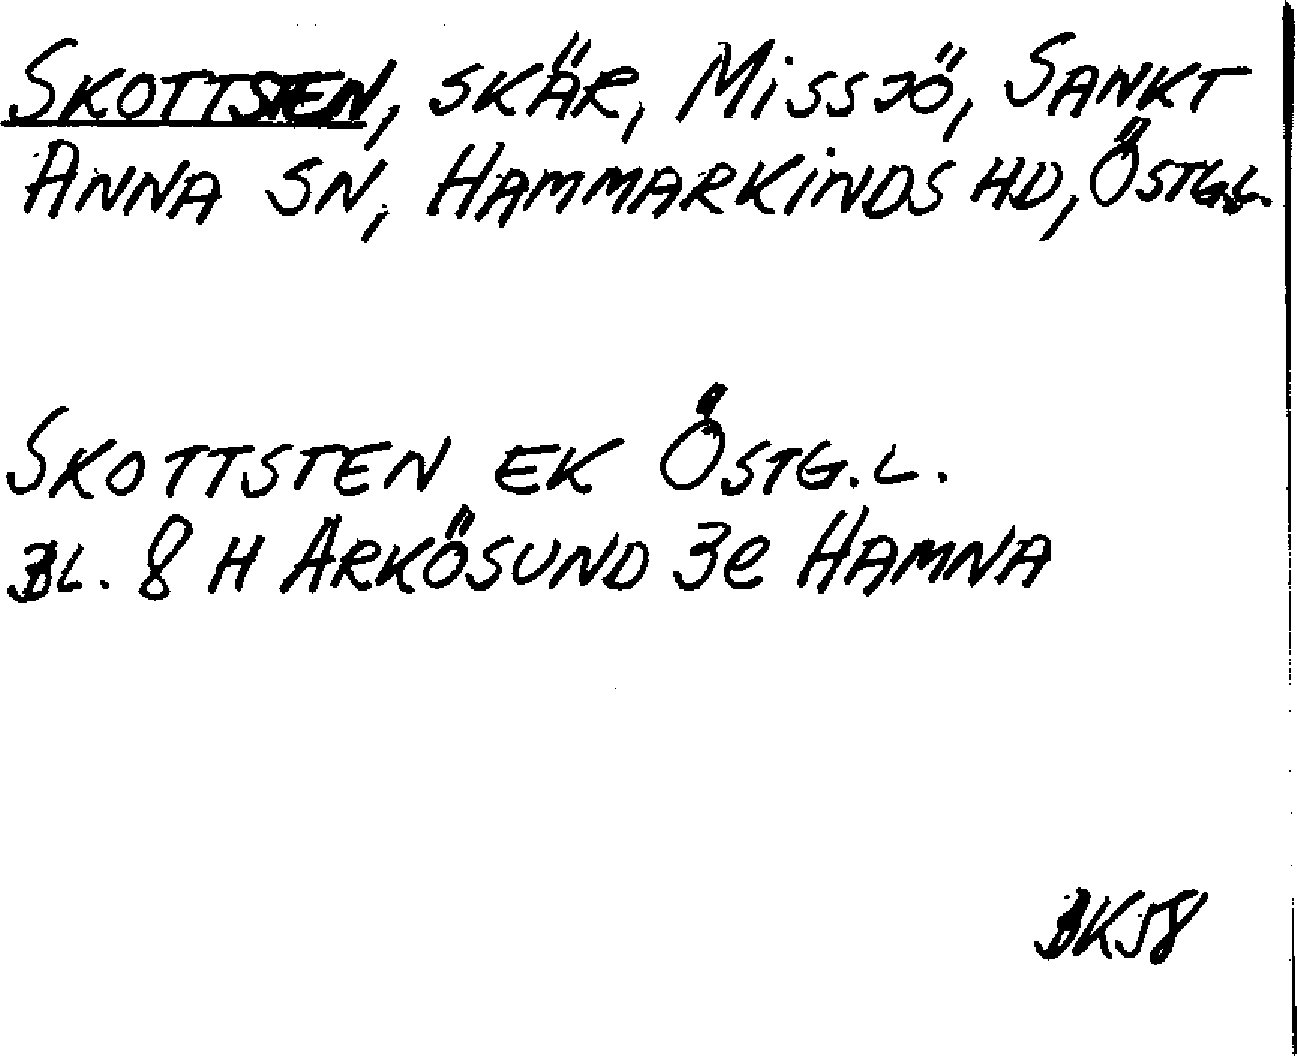 SKOTTSTEN, SKÄR, MISSJÖ, SANKT
ANNA SN, HAMMARKINDS HD, ÖSTG.L.
SKOTTSTEN EK ÖSTG.L.
BL. 8 H ARKÖSUND 3e HAMNA
BK58